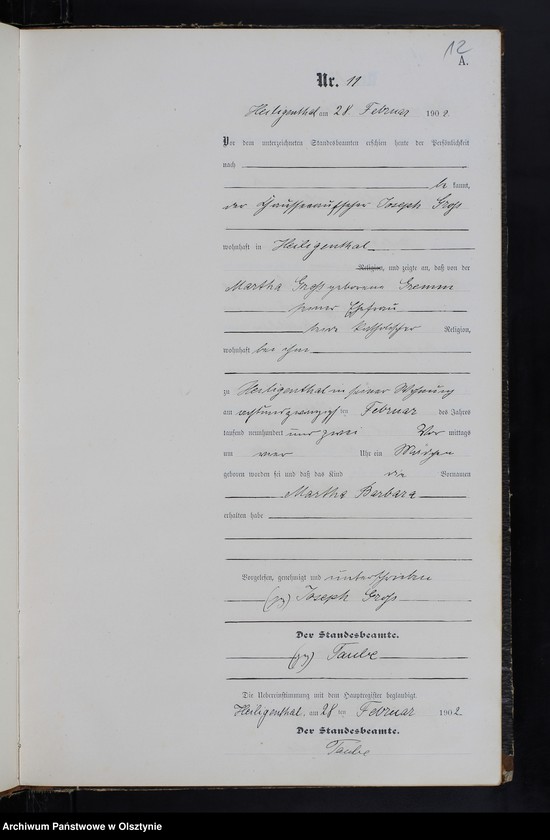 12
A.
Nr. 11
Heiligenthal am 28. Februar 1902.
Vor dem unterzeichneten Standesbeamten erschien heute der Persönlichkeit
nach
be kannt,
der Chausseeaufseher Joseph Groß
wohnhaft in Heiligenthal
Religion, und zeigte an, daß von der
Martha Groß geborene Gremm
seiner Ehefrau
katholischer Religion,
wohnhaft bei ihm
zu Heiligenthal in seiner Wohnung
am ten Februar des Jahres
tausend neunhundert und zwei Vor mittags
um Uhr ein Mädchen
geboren worden sei und daß das Kind die Vornamen
Martha Barbara
erhalten habe
Vorgelesen, genehmigt und unterschrieben
(gz) Joseph Groß
Der Standesbeamte.
(gz) Taube
Die Uebereinstimmung mit dem Hauptregister beglaubigt.
Heiligenthal, am 28 ten Februar 1902
Der Standesbeamte.
Taube
Archiwum Państwowe w Olsztynie